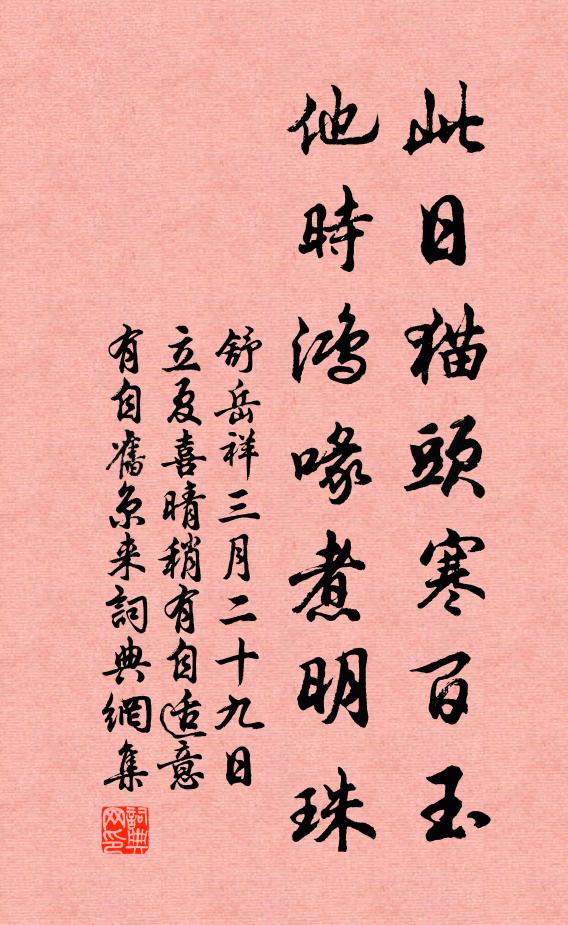 此日猫頭寒百玉
他時鴻喙煮明珠
舒岳祥三月二十九日
立夏喜晴稍有自适意
有自舊京来詞典網集
詞典网印